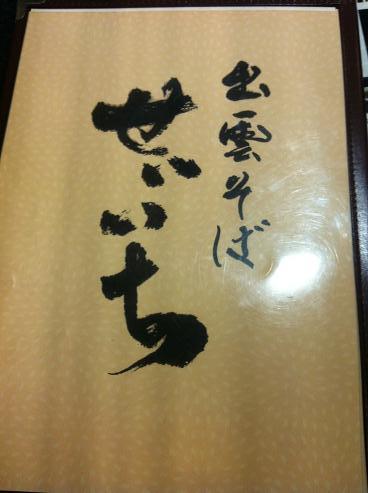 出雲そば
せいいち